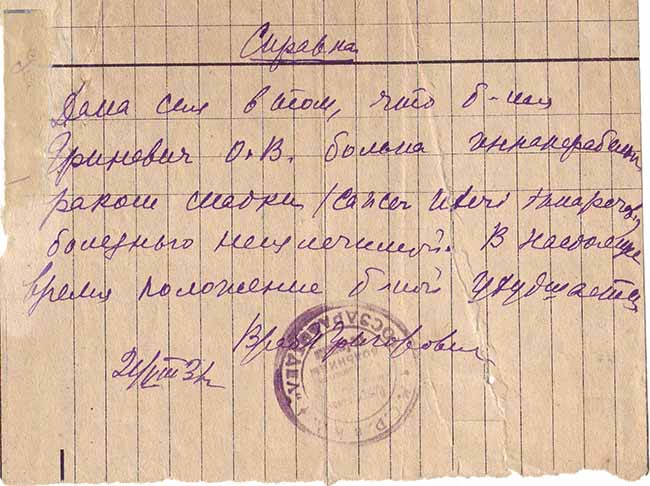 Справка
Дана сия в том, что б-ная
Гриневич О.В. больна иннаперабельн
раком матки /Cancer Uteri
болезнью неизлечимой. В настояще
время положение б-ной ухудшается
Врач Григорович